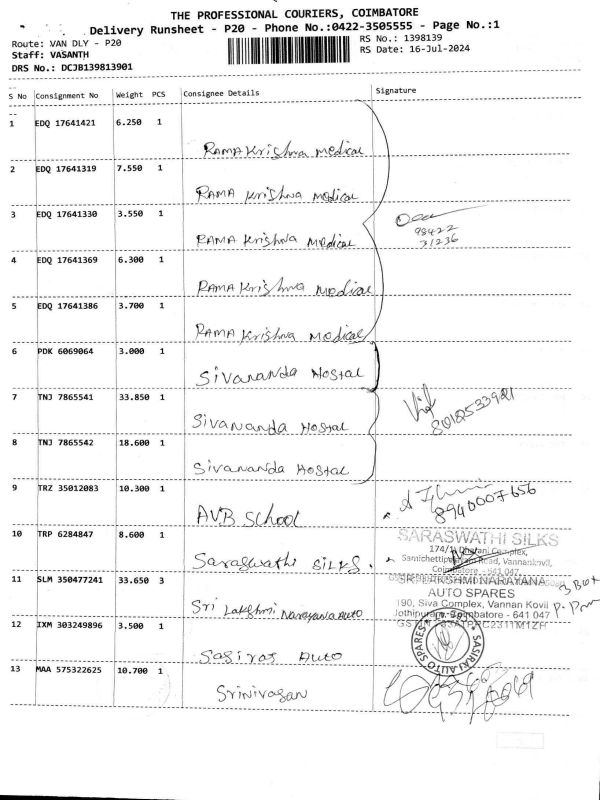 THE PROFESSIONAL COURIERS, COIMBATORE
Delivery Runsheet - P20 - Phone No.:0422-3505555 - Page No.:1
Route: VAN DLY - P20
RS No.: 1398139
Staff: VASANTH
RS Date: 16-Jul-2024
DRS No.: DCJB139813901
S No Consignment No Weight PCS Consignee Details Signature
1 EDQ 17641421 6.250 1
RAMA Krishna Medical
2 EDQ 17641319 7.550 1
RAMA Krishna Medical
3 EDQ 17641330 3.550 1
RAMA Krishna Medical
98422
31236
4 EDQ 17641369 6.300 1
RAMA Krishna Medical
5 EDQ 17641386 3.700 1
RAMA Krishna Medical
6 PDK 6069064 3.000 1
Sivananda Hostal
7 TNJ 7865541 33.850 1
Sivananda Hostal
8 TNJ 7865542 18.600 1
Sivananda Hostal
9 TRZ 35012083 10.300 1
AVB School
8940007656
10 TRP 6284847 8.600 1
Saraswathi SILKS.
SARASWATHI SILKS
11 SLM 350477241 33.650 3
Sri Lakshmi Narayana Auto
SRI LAKSHMI NARAYANA
AUTO SPARES
190, Siva Complex, Vannan Kovil
Jothipuram, Coimbatore - 641 047
3 Box
12 IXM 303249896 3.500 1
Sasiraj Auto
SASIRAJ AUTO SPARES
13 MAA 575322625 10.700 1
Srinivasan